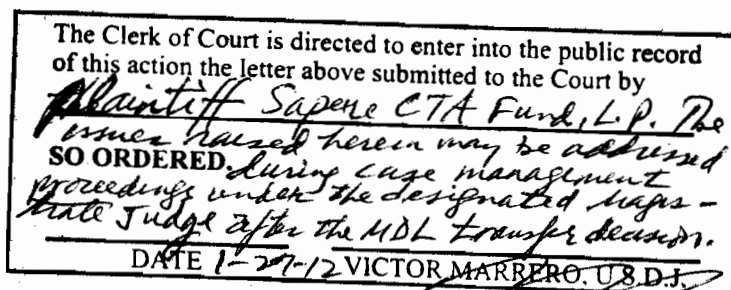 The Clerk of Court is directed to enter into the public record
of this action the letter above submitted to the Court by
plaintiff Sapere CTA Fund, L.P. The
issues raised herein may be addressed
SO ORDERED. during case management
proceedings under the designated Magis-
trate Judge after the MDL transfer decision.
DATE 1-27-12 VICTOR MARRERO, U.S.D.J.